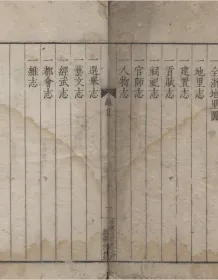 全浙地里圖
一地里志
一建置志
一貢賦志
一祠祀志
一官師志
一人物志
一選舉志
一藝文志
一經武志
一都會志
一雜志